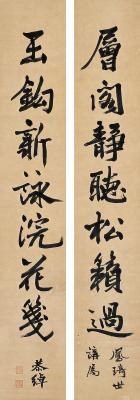 層閣靜聽松籟過
鳳琦世
讓屬
玉鈎新詠浣花箋
恭綽